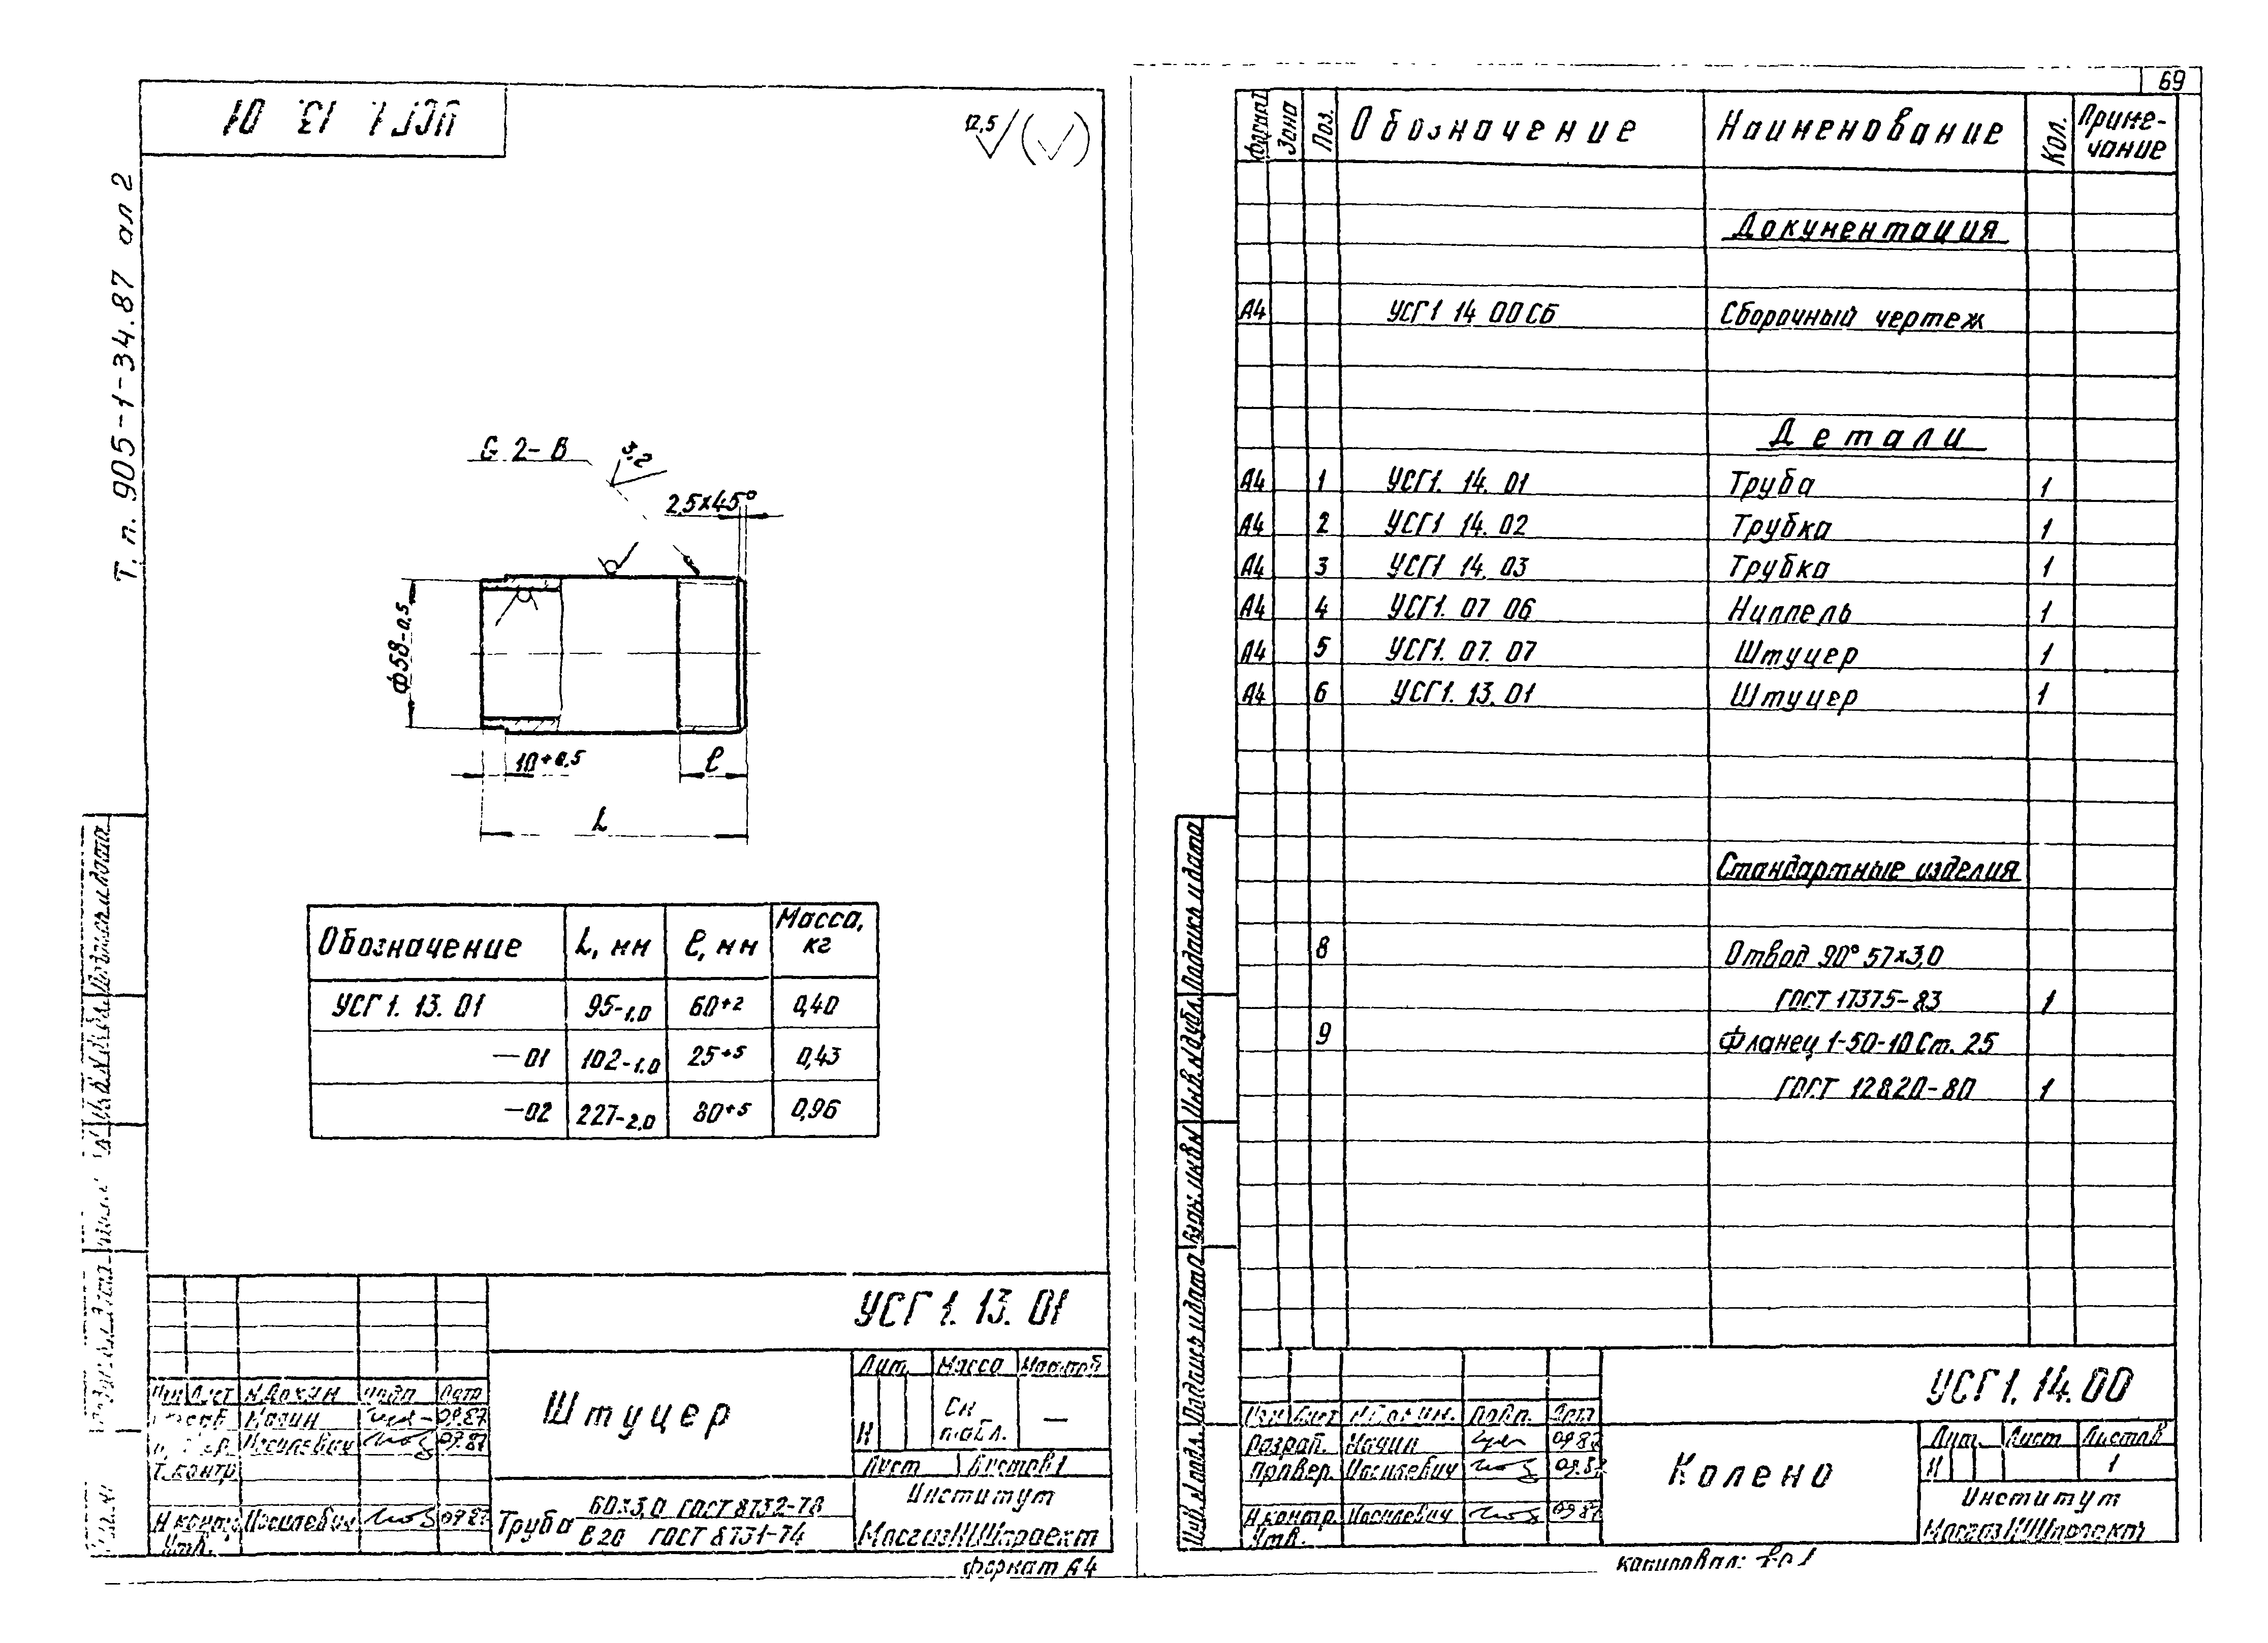 УСГ 1. 13. 01
Т. п. 905-1-34.87 ал 2
12,5 (√)
G 2-В
3,2
2,5×45°
Ф58-0,5
10+0,5
ℓ
L
Обозначение L, мм ℓ, мм Масса, кг
УСГ 1. 13. 01 95-1,0 60+2 0,40
—01 102-1,0 25+5 0,43
—02 227-2,0 80+5 0,96
УСГ 1. 13. 01
Штуцер
Лит. Масса Масштаб
И См табл. —
Лист Листов 1
Лист №докум подп Дата
Мачин 09.87
Иосилевич 09.87
Т. контр
Н контр Иосилевич 09.87
Утв.
Труба 60×3,0 ГОСТ 8732-78
В 20 ГОСТ 8731-74
Институт
МосгазНИИпроект
формат А4
69
Формат Зона Поз. Обозначение Наименование Кол. Приме-чание
Документация
А4 УСГ1 14 00 СБ Сборочный чертеж
Детали
А4 1 УСГ1. 14. 01 Труба 1
А4 2 УСГ1 14. 02 Трубка 1
А4 3 УСГ1 14. 03 Трубка 1
А4 4 УСГ1. 07 06 Ниппель 1
А4 5 УСГ1. 07. 07 Штуцер 1
А4 6 УСГ1. 13. 01 Штуцер 1
Стандартные изделия
8 Отвод 90° 57×3,0
ГОСТ 17375-83 1
9 Фланец 1-50-10 Ст. 25
ГОСТ 12820-80 1
Подпись и дата
Инв. № дубл.
Взам. инв №
Подпись и дата
Инв. № подл.
УСГ 1. 14. 00
Изм Лист № докум. Подп. Дата
Разраб. Мачин 09.87
Провер. Иосилевич 09.87
Н.контр. Иосилевич 09.87
Утв.
Колено
Лит. Лист Листов
И 1
Институт
МосгазНИИпроект
Копировал: